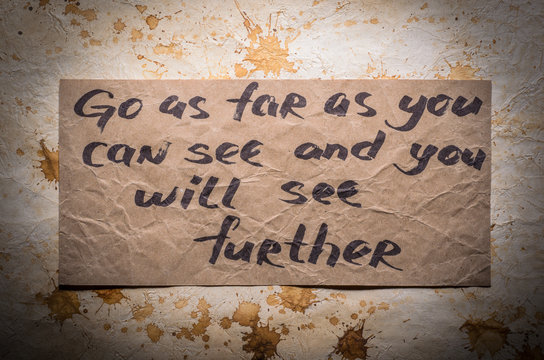 Go as far as you
can see and you
will see
further